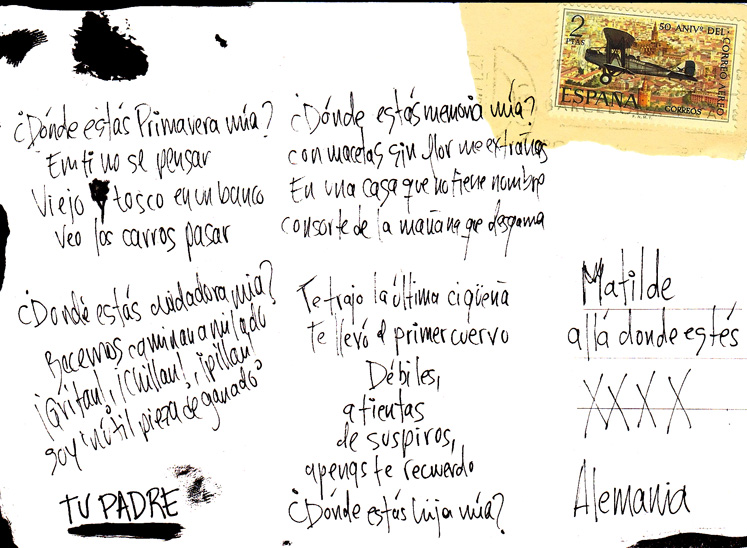 ¿Dónde estás Primavera mía?
En ti no se pensar
Viejo y tosco en un banco
Veo los carros pasar
¿Dónde estás cuidadora mía?
Becerros caminan a mi lado
¡Gritan!, ¡Chillan!, ¡pillan!
soy "inútil pieza de ganado"
TU PADRE
¿Dónde estás memoria mía?
con macetas sin flor me extrañas
En una casa que no tiene nombre
consorte de la mañana que desgama
Te trajo la última cigüeña
Te llevó el primer cuervo
Débiles,
a tientas
de suspiros,
apenas te recuerdo
¿Dónde estás hija mía?
2
PTAS
50 ANIVº DEL
CORREO AEREO
ESPAÑA
CORREOS
Matilde
allá donde estés
XXXX
Alemania